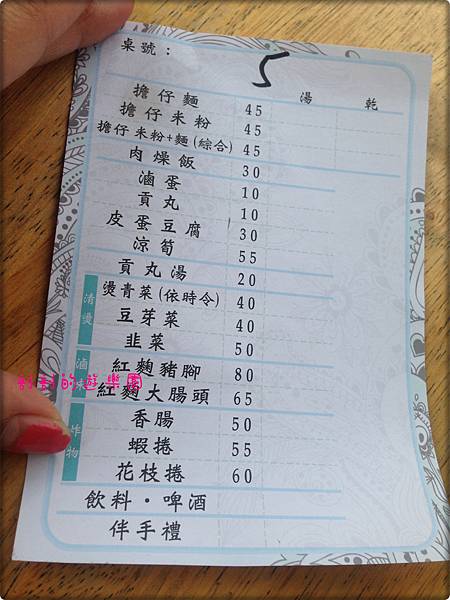 桌號： 5
湯 乾
擔仔麵 45
擔仔米粉 45
擔仔米粉+麵(綜合) 45
肉燥飯 30
滷蛋 10
貢丸 10
皮蛋豆腐 30
涼筍 55
貢丸湯 20
清燙 燙青菜(依時令) 40
豆芽菜 40
韭菜 50
滷味 紅麴豬腳 80
的遊樂園
紅麴大腸頭 65
炸物 香腸 50
蝦捲 55
花枝捲 60
飲料・啤酒
伴手禮